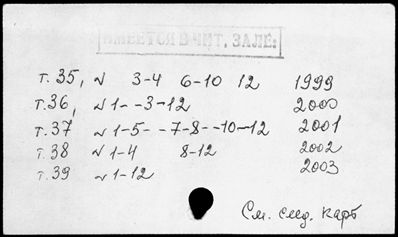 ИМЕЕТСЯ В ЧИТ. ЗАЛЕ:
т. 35, N 3-4 6-10 12 1999
т. 36, N 1--3-12 2000
т. 37 N 1-5--7-8--10-12 2001
т. 38 N 1-4 8-12 2002
т. 39 N 1-12 2003
См. след. карт